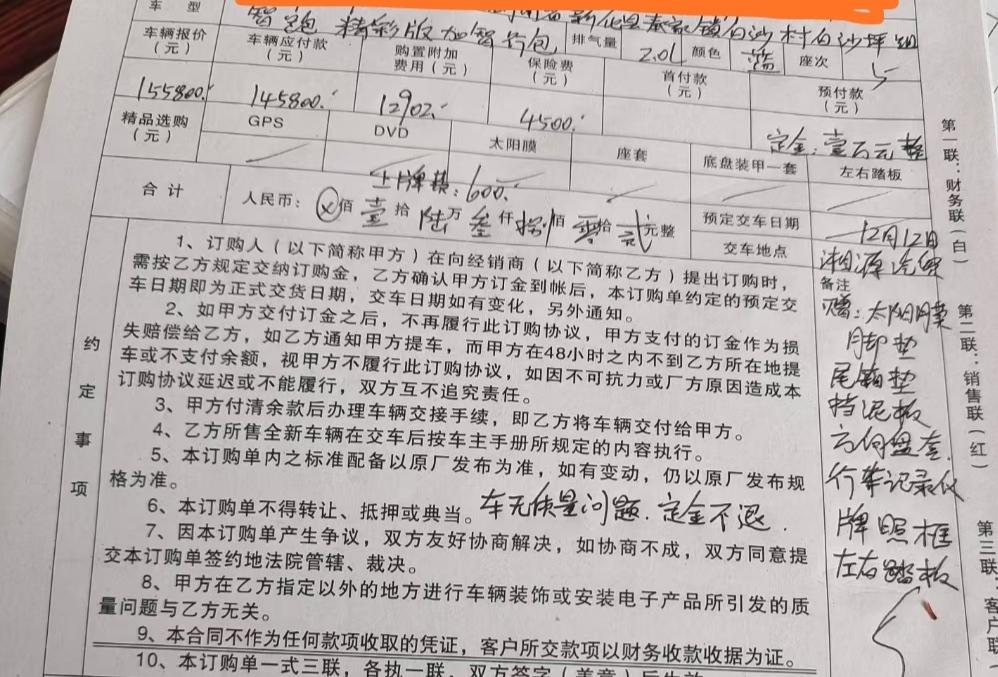 车 型
智跑 精彩版加智行包
镇白沙村白沙坪组
排气量 2.0L 颜色 蓝 座次 5
车辆报价（元） 车辆应付款（元） 购置附加费用（元） 保险费（元） 首付款（元） 预付款（元）
155800. 145800. 12902. 4500. 定金：壹万元整
精品选购（元） GPS DVD 太阳膜 座套 底盘装甲一套 左右踏板
上牌费：600.
合 计 人民币：ⓧ佰 壹 拾 陆 万 叁 仟 捌 佰 零 拾 贰 元整
预定交车日期 12月12日
交车地点 湘源汽贸
约定事项
1、订购人（以下简称甲方）在向经销商（以下简称乙方）提出订购时，
需按乙方规定交纳订购金，乙方确认甲方订金到帐后，本订购单约定的预定交
车日期即为正式交货日期，交车日期如有变化，另外通知。
2、如甲方交付订金之后，不再履行此订购协议，甲方支付的订金作为损
失赔偿给乙方，如乙方通知甲方提车，而甲方在48小时之内不到乙方所在地提
车或不支付余额，视甲方不履行此订购协议，如因不可抗力或厂方原因造成本
订购协议延迟或不能履行，双方互不追究责任。
3、甲方付清余款后办理车辆交接手续，即乙方将车辆交付给甲方。
4、乙方所售全新车辆在交车后按车主手册所规定的内容执行。
5、本订购单内之标准配备以原厂发布为准，如有变动，仍以原厂发布规
格为准。
6、本订购单不得转让、抵押或典当。车无质量问题.定金不退.
7、因本订购单产生争议，双方友好协商解决，如协商不成，双方同意提
交本订购单签约地法院管辖、裁决。
8、甲方在乙方指定以外的地方进行车辆装饰或安装电子产品所引发的质
量问题与乙方无关。
9、本合同不作为任何款项收取的凭证，客户所交款项以财务收款收据为证。
10、本订购单一式三联，各执一联，双方签字（盖章）后生效
备注
赠：太阳膜
脚垫
尾箱垫
挡泥板
方向盘套
行车记录仪
牌照框
左右踏板
第一联：财务联（白）
第二联：销售联（红）
第三联 客户联